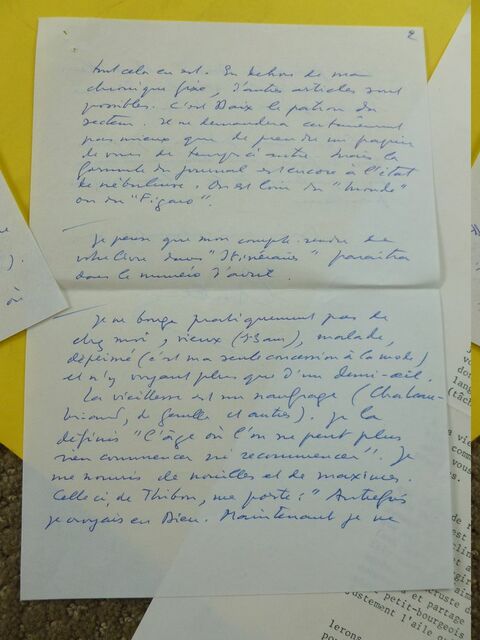 2
tout cela en est. En dehors de ma
chronique fixe, d'autres articles sont
possibles. C'est Daix le patron du
secteur. Je ne demanderai certainement
pas mieux que de prendre un papier
de vous de temps à autre. Mais la
formule du journal est encore à l'état
de nébuleuse. On est loin du "Monde"
ou du "Figaro".
Je pense que mon compte-rendu de
votre livre dans "Itinéraires" paraîtra
dans le numéro d'avril.
Je ne bouge pratiquement pas de
chez moi, vieux (73 ans), malade,
déprimé (c'est ma seule concession à la mode)
et n'y voyant plus que d'un demi-œil.
La vieillesse est un naufrage (Chateau-
briand, de Gaulle et autres). Je la
définis "L'âge où l'on ne peut plus
rien commencer ni recommencer". Je
me nourris de nouilles et de maximes.
Celle ci, de Thibon, me porte : "Autrefois
je croyais en Dieu. Maintenant je ne
à
).
vous
lang
(tâch
a vie
vous
es.
de r
clin
rgir
sim
cruste d
et partage
petit-bourgeois
justement l'aile qu
lerons